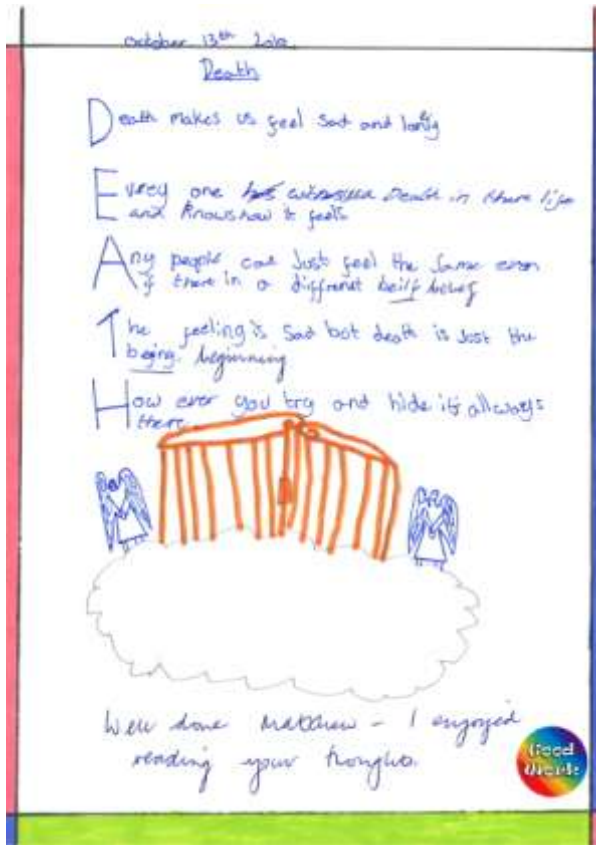 October 13th
Death
Death makes us feel sad and lonley
Evrey one has witnessed Death in there life
and Knows how it feels
Any people can Just feel the same even
if there in a diffrenet beilf belief
The feeling is sad but death is Just the
beging. beginning
How ever you try and hide it's allways
there.
Well done Matthew - I enjoyed
reading your thoughts.
Good
Work